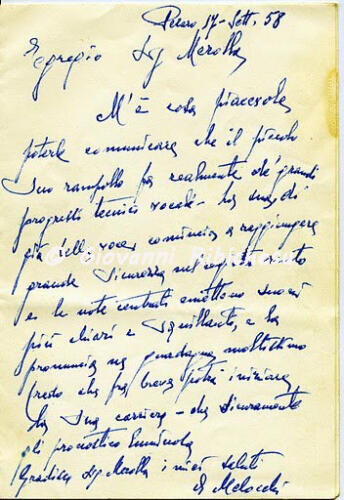 Pesaro 17-Sett. 58
Egregio Sig Merolla
M'è cosa piacevole
poterle comunicare che il piccolo
Suo rampollo fa realmente de' grandi
progressi tecnici vocali -
già della voce comincia a raggiungere
grande sicurezza
e le note centrali emettono suoni
più chiari e squillanti, e la
pronuncia ne guadagna moltissimo
Credo che fra breve potrà iniziare
la Sua carriera - che sicuramente
gli pronostico
Gradisca Sig Merolla i miei saluti
Melocchi
© Giovanni